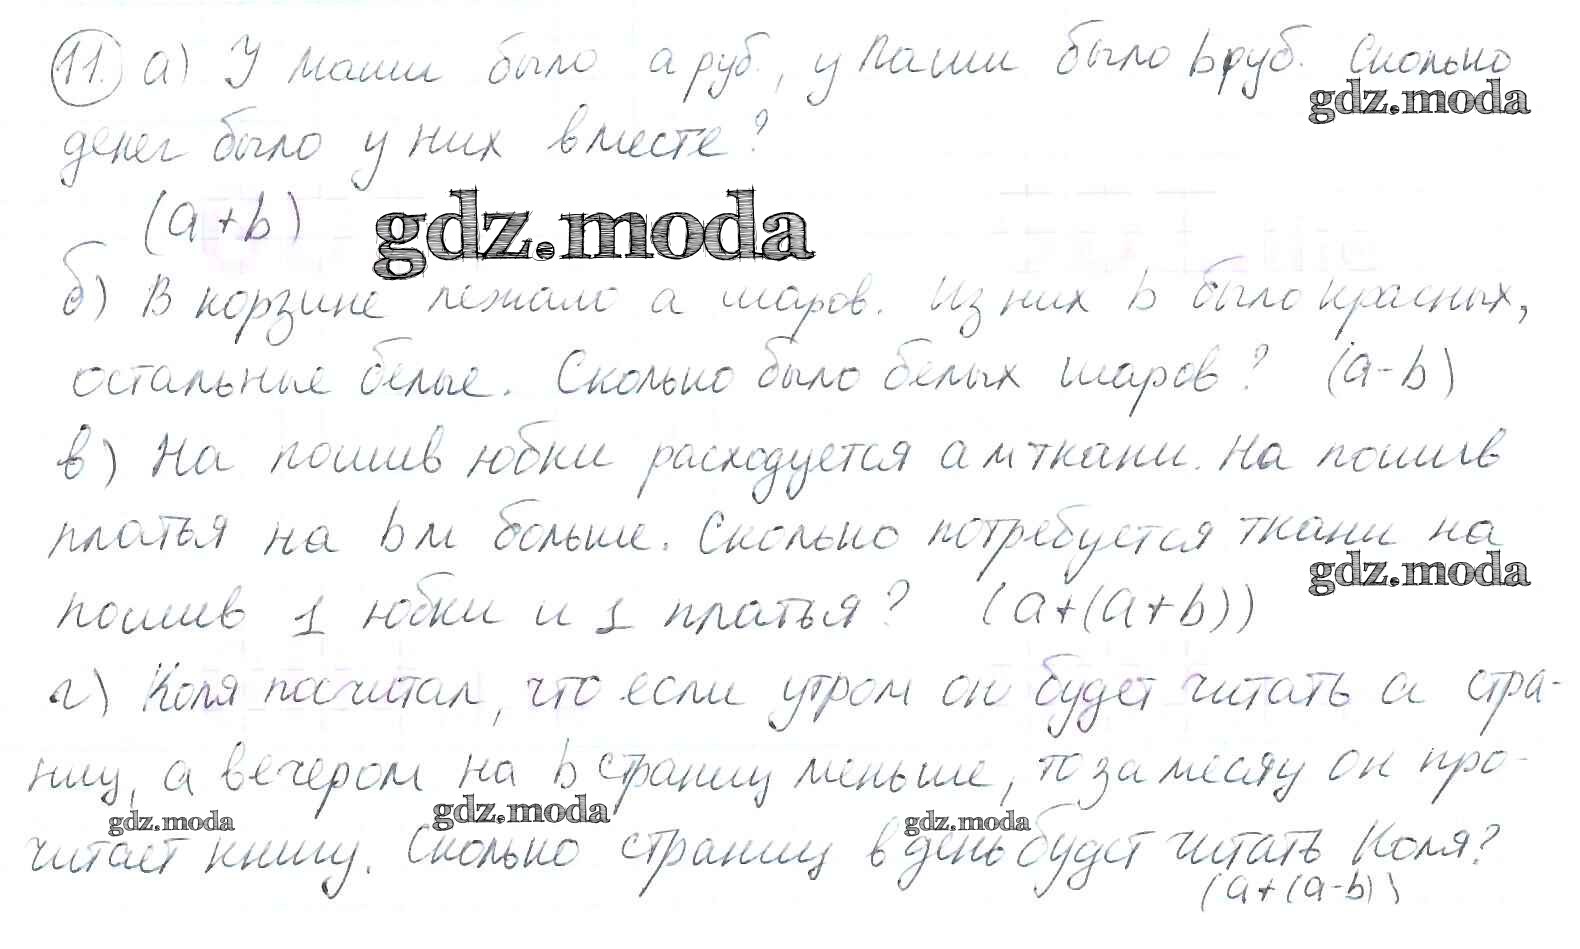 11. а) У Маши было a руб., у Паши было b руб. Сколько
gdz.moda
денег было у них вместе?
(a+b)
gdz.moda
б) В корзине лежало a шаров. Из них b было красных,
остальные белые. Сколько было белых шаров? (a-b)
в) На пошив юбки расходуется a м ткани. На пошив
платья на b м больше. Сколько потребуется ткани на
gdz.moda
пошив 1 юбки и 1 платья? (a+(a+b))
г) Коля посчитал, что если утром он будет читать a стра-
ниц, а вечером на b страниц меньше, то за месяц он про-
gdz.moda gdz.moda gdz.moda
читает книгу. Сколько страниц в день будет читать Коля?
(a+(a-b))